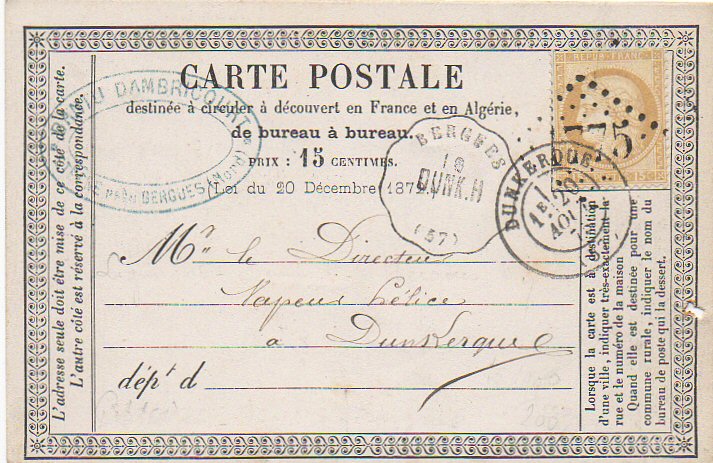 CARTE POSTALE
destinée à circuler à découvert en France et en Algérie,
de bureau à bureau.
PRIX : 15 CENTIMES.
(Loi du 20 Décembre 1872.)
DAMBRICOURT
BERGUES (Nord)
BERGUES
DUNK.H
(57)
REPUB. FRANC.
15
DUNKERQUE
1E
20
AOUT
Mr. le Directeur
Vapeurs hélice
à Dunkerque
dépt d
L'adresse seule doit être mise de ce côté de la carte.
L'autre côté est réservé à la correspondance.
Lorsque la carte est à destination
d'une ville, indiquer très-exactement la
rue et le numéro de la maison
Quand elle est destinée pour une
commune rurale, indiquer le nom du
bureau de poste qui la dessert.